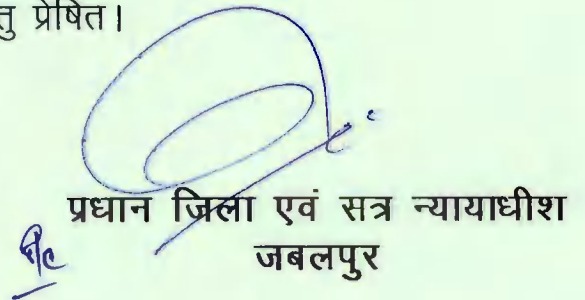 तु प्रेषित।
प्रधान जिला एवं सत्र न्यायाधीश
जबलपुर